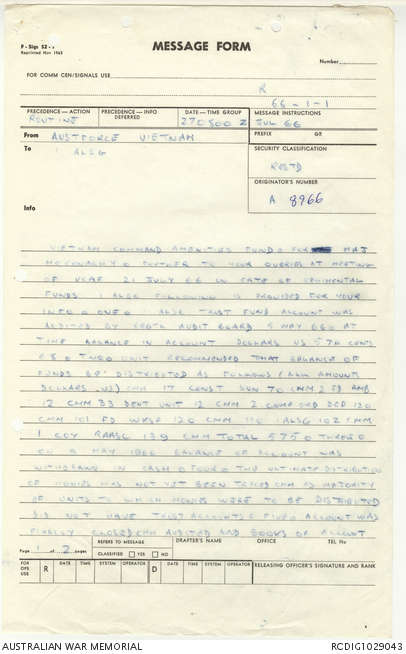 F-Sigs 52-
Reprinted Nov 1965
MESSAGE FORM
Number
FOR COMM CEN/SIGNALS USE
R
66-1-1
PRECEDENCE—ACTION
ROUTINE
PRECEDENCE—INFO
DEFERRED
DATE—TIME GROUP
270800 Z
MESSAGE INSTRUCTIONS
JUL 66
PREFIX GR
From AUSTFORCE VIETNAM
To 1 ALSG
SECURITY CLASSIFICATION
RESTD
ORIGINATOR'S NUMBER
A 8966
Info
VIETNAM COMMAND AMENITIES FUND FOR MAJ
FURTHER TO YOUR QUERIES AT MEETING
OF VCAF 21 JULY 66 IN CASE OF REGIMENTAL
FUNDS 1 ALSG FOLLOWING IS PROVIDED FOR YOUR
INFO ONE ALSG TRUST FUND ACCOUNT WAS
AUDITED BY AUDIT BOARD 5 MAY 66 AT
TIME BALANCE IN ACCOUNT DOLLARS US 576 CENTS
TWO UNIT RECOMMENDED THAT BALANCE OF
FUNDS BE DISTRIBUTED AS FOLLOWS (ALL AMOUNTS
DOLLARS US) CMM 17 CONST SQN 70 CMM 2 FD AMB
12 CMM 33 DENT UNIT 12 CMM 2 COMP ORD DEP 120
CMM 101 FD WKSP 120 CMM HQ 1 ALSG 102 CMM
1 COY RAASC 139 CMM TOTAL 575 THREE
ON MAY BALANCE OF ACCOUNT WAS
WITHDRAWN IN CASH FOUR THE ULTIMATE DISTRIBUTION
OF MONIES HAS NOT YET BEEN CMM AS MAJORITY
OF UNITS TO WHICH MONIES WERE TO BE DISTRIBUTED
DID NOT HAVE TRUST ACCOUNTS FIVE ACCOUNT WAS
FINALLY CLOSED CMM AUDITED AND BOOKS OF ACCOUNT
Page 1 of 2 pages
REFERS TO MESSAGE
CLASSIFIED YES NO
DRAFTER'S NAME
OFFICE
TEL No
FOR OPS USE
R DATE TIME SYSTEM OPERATOR D DATE TIME SYSTEM OPERATOR
RELEASING OFFICER'S SIGNATURE AND RANK
AUSTRALIAN WAR MEMORIAL
RCDIG1029043